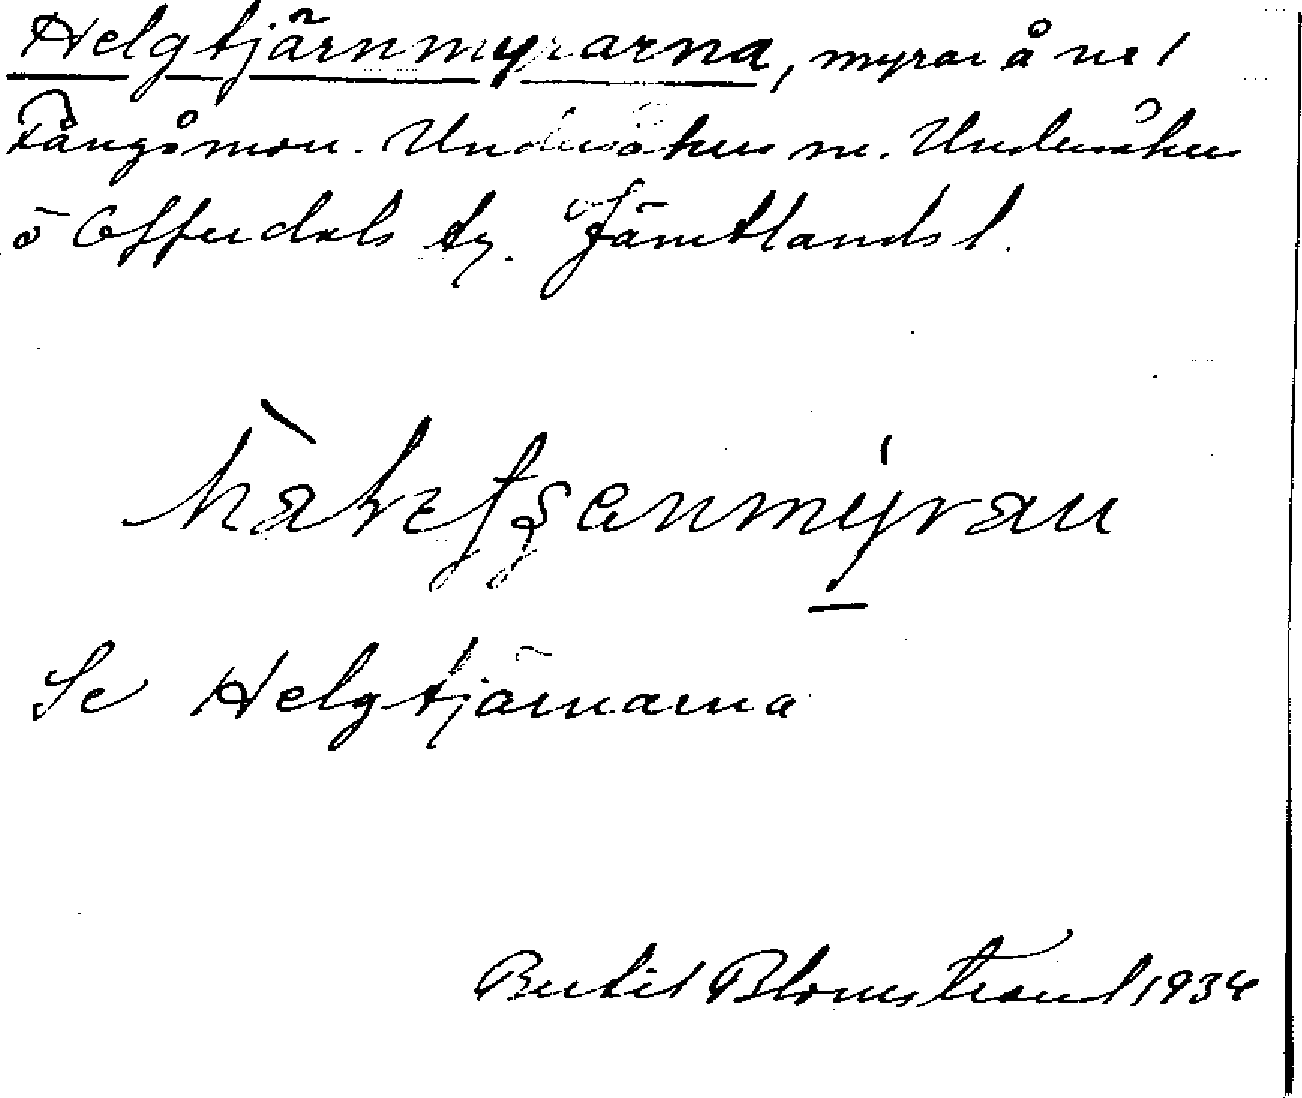 Helgtjärnmyrarna, myrar å ne l
Fångåmon. Undersåkers sn. Undersåkers
o Offerdals tg. Jämtlands l.
Se Helgtjärnarna
Bertil Blomstrand 1934